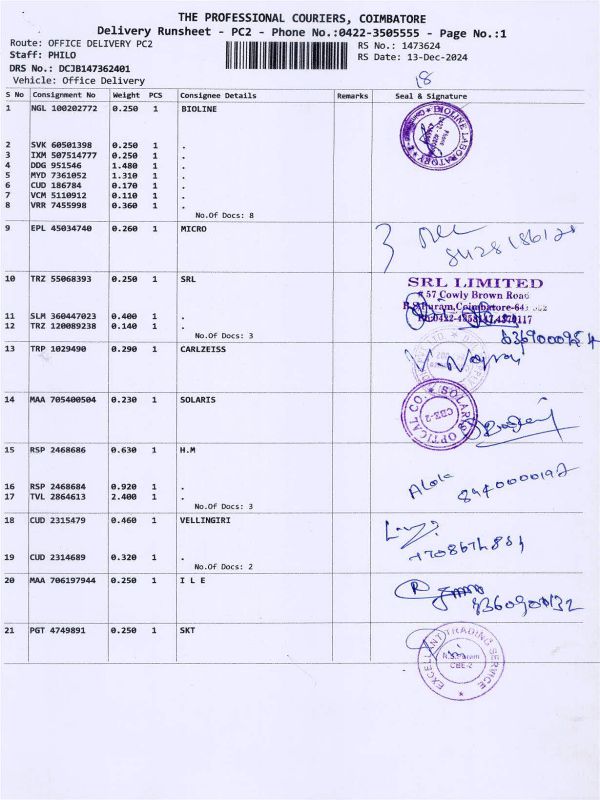 THE PROFESSIONAL COURIERS, COIMBATORE
Delivery Runsheet - PC2 - Phone No.:0422-3505555 - Page No.:1
Route: OFFICE DELIVERY PC2
RS No.: 1473624
Staff: PHILO
RS Date: 13-Dec-2024
DRS No.: DCJB147362401
Vehicle: Office Delivery
18
S No Consignment No Weight PCS Consignee Details Remarks Seal & Signature
1 NGL 100202772 0.250 1 BIOLINE
BIOLINE LABORATORY
2 SVK 60501398 0.250 1 .
3 IXM 507514777 0.250 1 .
4 DDG 951546 1.480 1 .
5 MYD 7361052 1.310 1 .
6 CUD 186784 0.170 1 .
7 VCM 5110912 0.110 1 .
8 VRR 7455998 0.360 1 .
No.Of Docs: 8
9 EPL 45034740 0.260 1 MICRO
10 TRZ 55068393 0.250 1 SRL
SRL LIMITED
# 57 Cowly Brown Road
R.S.Puram, Coimbatore-641 002
11 SLM 360447023 0.400 1 .
12 TRZ 120089238 0.140 1 .
No.Of Docs: 3
13 TRP 1029490 0.290 1 CARLZEISS
14 MAA 705400504 0.230 1 SOLARIS
SOLARIS OPTICAL CO.
CBE-2
15 RSP 2468686 0.630 1 H.M
16 RSP 2468684 0.920 1 .
17 TVL 2864613 2.400 1 .
No.Of Docs: 3
18 CUD 2315479 0.460 1 VELLINGIRI
19 CUD 2314689 0.320 1 .
No.Of Docs: 2
20 MAA 706197944 0.250 1 I L E
21 PGT 4749891 0.250 1 SKT
EXCELLANT TRADING SERVICE
CBE-2